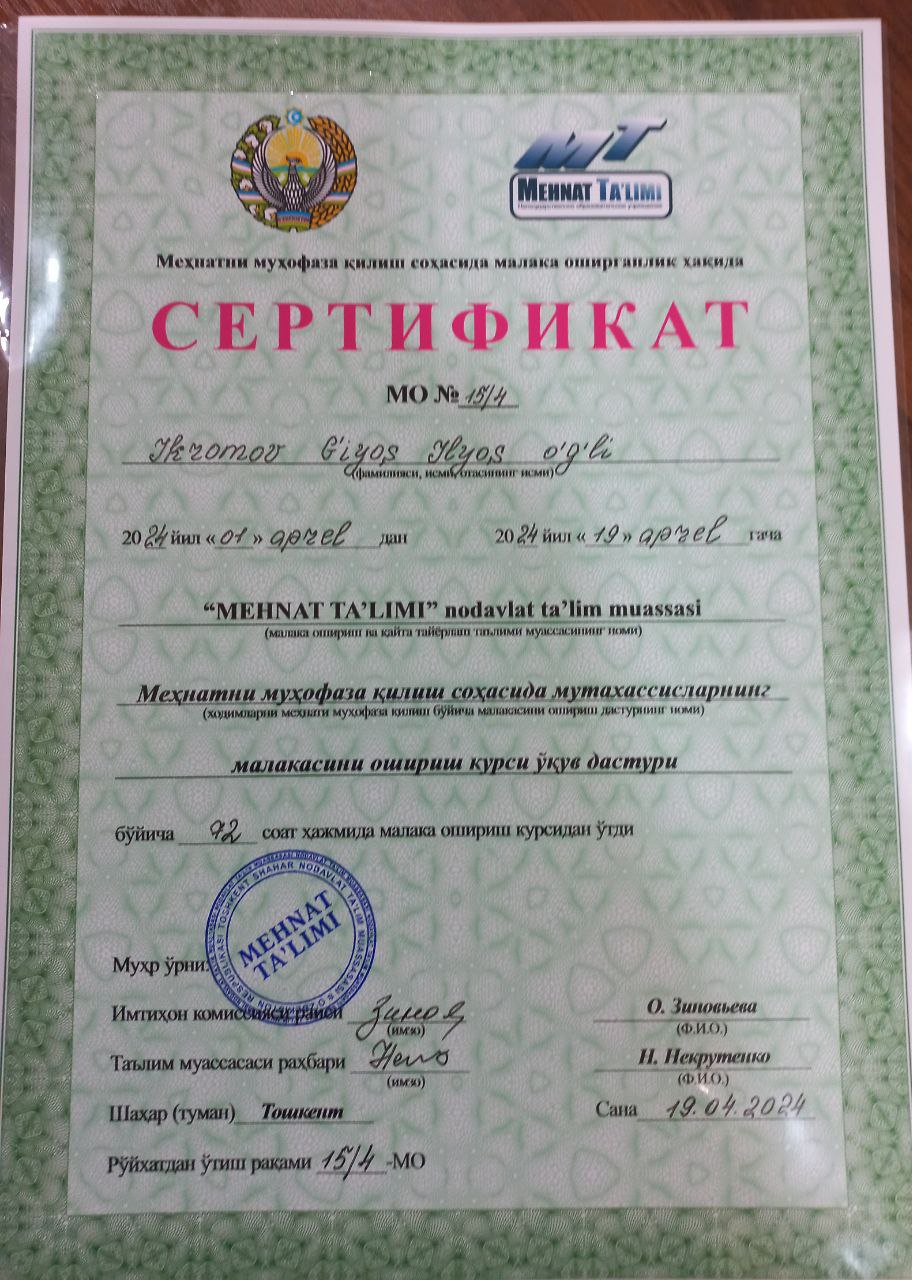 MT
MEHNAT TA'LIMI
Меҳнатни муҳофаза қилиш соҳасида малака оширганлик ҳақида
СЕРТИФИКАТ
МО № 15/4
Ikromov G'iyos Ilyos o'g'li
(фамилияси, исми, отасининг исми)
2024 йил «01» апрел дан 2024 йил «19» апрел гача
“MEHNAT TA’LIMI” nodavlat ta’lim muassasi
(малака ошириш ва қайта тайёрлаш таълими муассасининг номи)
Меҳнатни муҳофаза қилиш соҳасида мутахассисларнинг
(ходимларни меҳнати муҳофаза қилиш бўйича малакасини ошириш дастурнинг номи)
малакасини ошириш курси ўқув дастури
бўйича 72 соат ҳажмида малака ошириш курсидан ўтди
MEHNAT
TA'LIMI
Муҳр ўрни:
Имтиҳон комиссияси раиси О. Зиновьева
(имзо) (Ф.И.О.)
Таълим муассасаси раҳбари Н. Некрутенко
(имзо) (Ф.И.О.)
Шаҳар (туман) Тошкент Сана 19.04.2024
Рўйхатдан ўтиш рақами 15/4 -МО